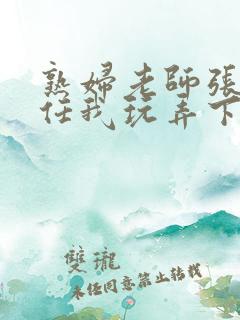 熟婦老師張
任我玩弄下
雙瓏
未經同意禁止轉載